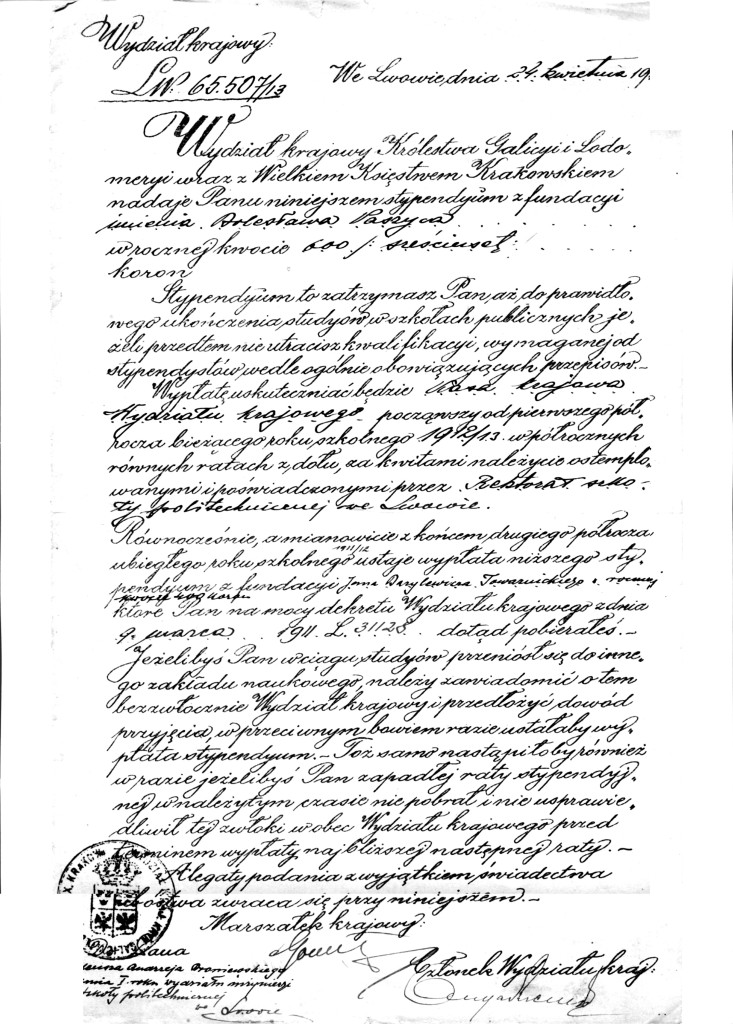 Wydział krajowy:
LW. 65.507/13
We Lwowie, dnia 24. kwietnia 19
Wydział krajowy Królestwa Galicyi i Lodo-
meryi wraz z Wielkiem Księstwem Krakowskiem
nadaje Panu niniejszem stypendyum z fundacyi
imienia Bolesława
w rocznej kwocie 600 /: sześciuset :
koron
Stypendyum to zatrzymasz Pan, aż do prawidło-
wego ukończenia studyów w szkołach publicznych je-
żeli przedtem nie utracisz kwalifikacyi, wymaganej od
stypendystów wedle ogólnie obowiązujących przepisów.-
Wypłatę uskuteczniać będzie Kasa krajowa
Wydziału krajowego, począwszy od pierwszego pół-
rocza bieżącego roku szkolnego 1912/13. w półrocznych
równych ratach z dołu, za kwitami należycie ostemplo-
wanymi i poświadczonymi przez Rektorat szko-
ły politechnicznej we Lwowie.
Równocześnie, a mianowicie z końcem drugiego półrocza
ubiegłego roku szkolnego 1911/12 ustaje wypłata niższego sty-
pendyum z fundacyi Jana Towarnickiego o rocznej
kwocie 400 koron
które Pan na mocy dekretu Wydziału krajowego z dnia
9. marca 191 L. 31128. dotąd pobierałeś.-
Jeżelibyś Pan w ciągu studyów przeniósł się do inne-
go zakładu naukowego, należy zawiadomić o tem
bezzwłocznie Wydział krajowy i przedłożyć dowód
przyjęcia, w przeciwnym bowiem razie ustałaby wy-
płata stypendyum.- Toż samo nastąpiłoby również
w razie jeżelibyś Pan zapadłej raty stypendyj-
nej w należytym czasie nie pobrał i nie usprawie-
dliwił tej zwłoki wobec Wydziału krajowego przed
terminem wypłaty najbliższej następnej raty.-
Alegaty podania z wyjątkiem świadectwa
ubóstwa zwraca się przy niniejszem.-
Marszałek krajowy:
Członek Wydziału kraj:
Pana
Andrzeja Broniewskiego
I. roku wydziału inżynierji
szkoły politechnicznej
we Lwowie